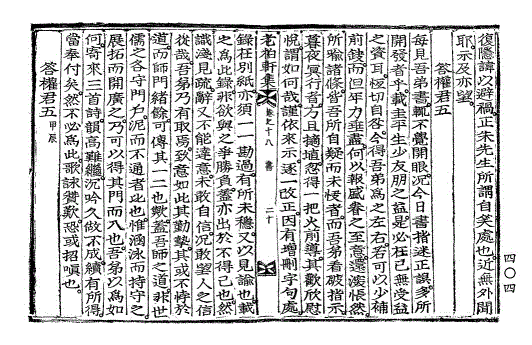 復隱諱以避禍正朱先生所謂自笑處也近無外聞
耶示及亦望
答權君五
每見吾弟書輒不覺開眼沉今日書指迷正誤多所
開發者乎載圭平生少友朋之益是必在己無受益
之資耳恆切自咎今得吾弟爲之左右若可以少補
前愆而但年力垂盡何以報盛眷之至意還淒悵然
所喩諸條皆吾所自疑而未快者而吾弟看破指示
暮夜冥行音方且擿埴忽得一把火前導其歡欣慰
悅謂如何哉謹依來示逐一改正因有增刪字句處
老柏軒集 卷之十八 書 二十
錄在別紙亦須一一勘過有所未穩又以見諭也載
之爲此錄非欲與之爭勝負蓋亦出於不得已也然
識淺見疏辭又不能達意未敢自信沉敢望人之信
從哉吾弟乃有取焉致意如此其勤摯其或不悖於
道而師門緖餘可傳其一二也歟蓋吾師之道非世
儒之各守門戶泥而不通者比也惟涵泳而持守之
展拓而開廣之乃可以得其門而入也吾弟以爲如
何寄來三首詩韻高難繼沉吟久故不成續有所得
當奉付矣然不必爲此歌詠贊歎恐或招嗔也
答權君五 甲辰
四〇四